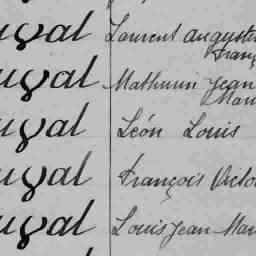 ugal Laurent Auguste
Franç
ugal Mathurin Jean
Mari
ugal Léon Louis
ugal François Victo
ugal Louis Jean Mari